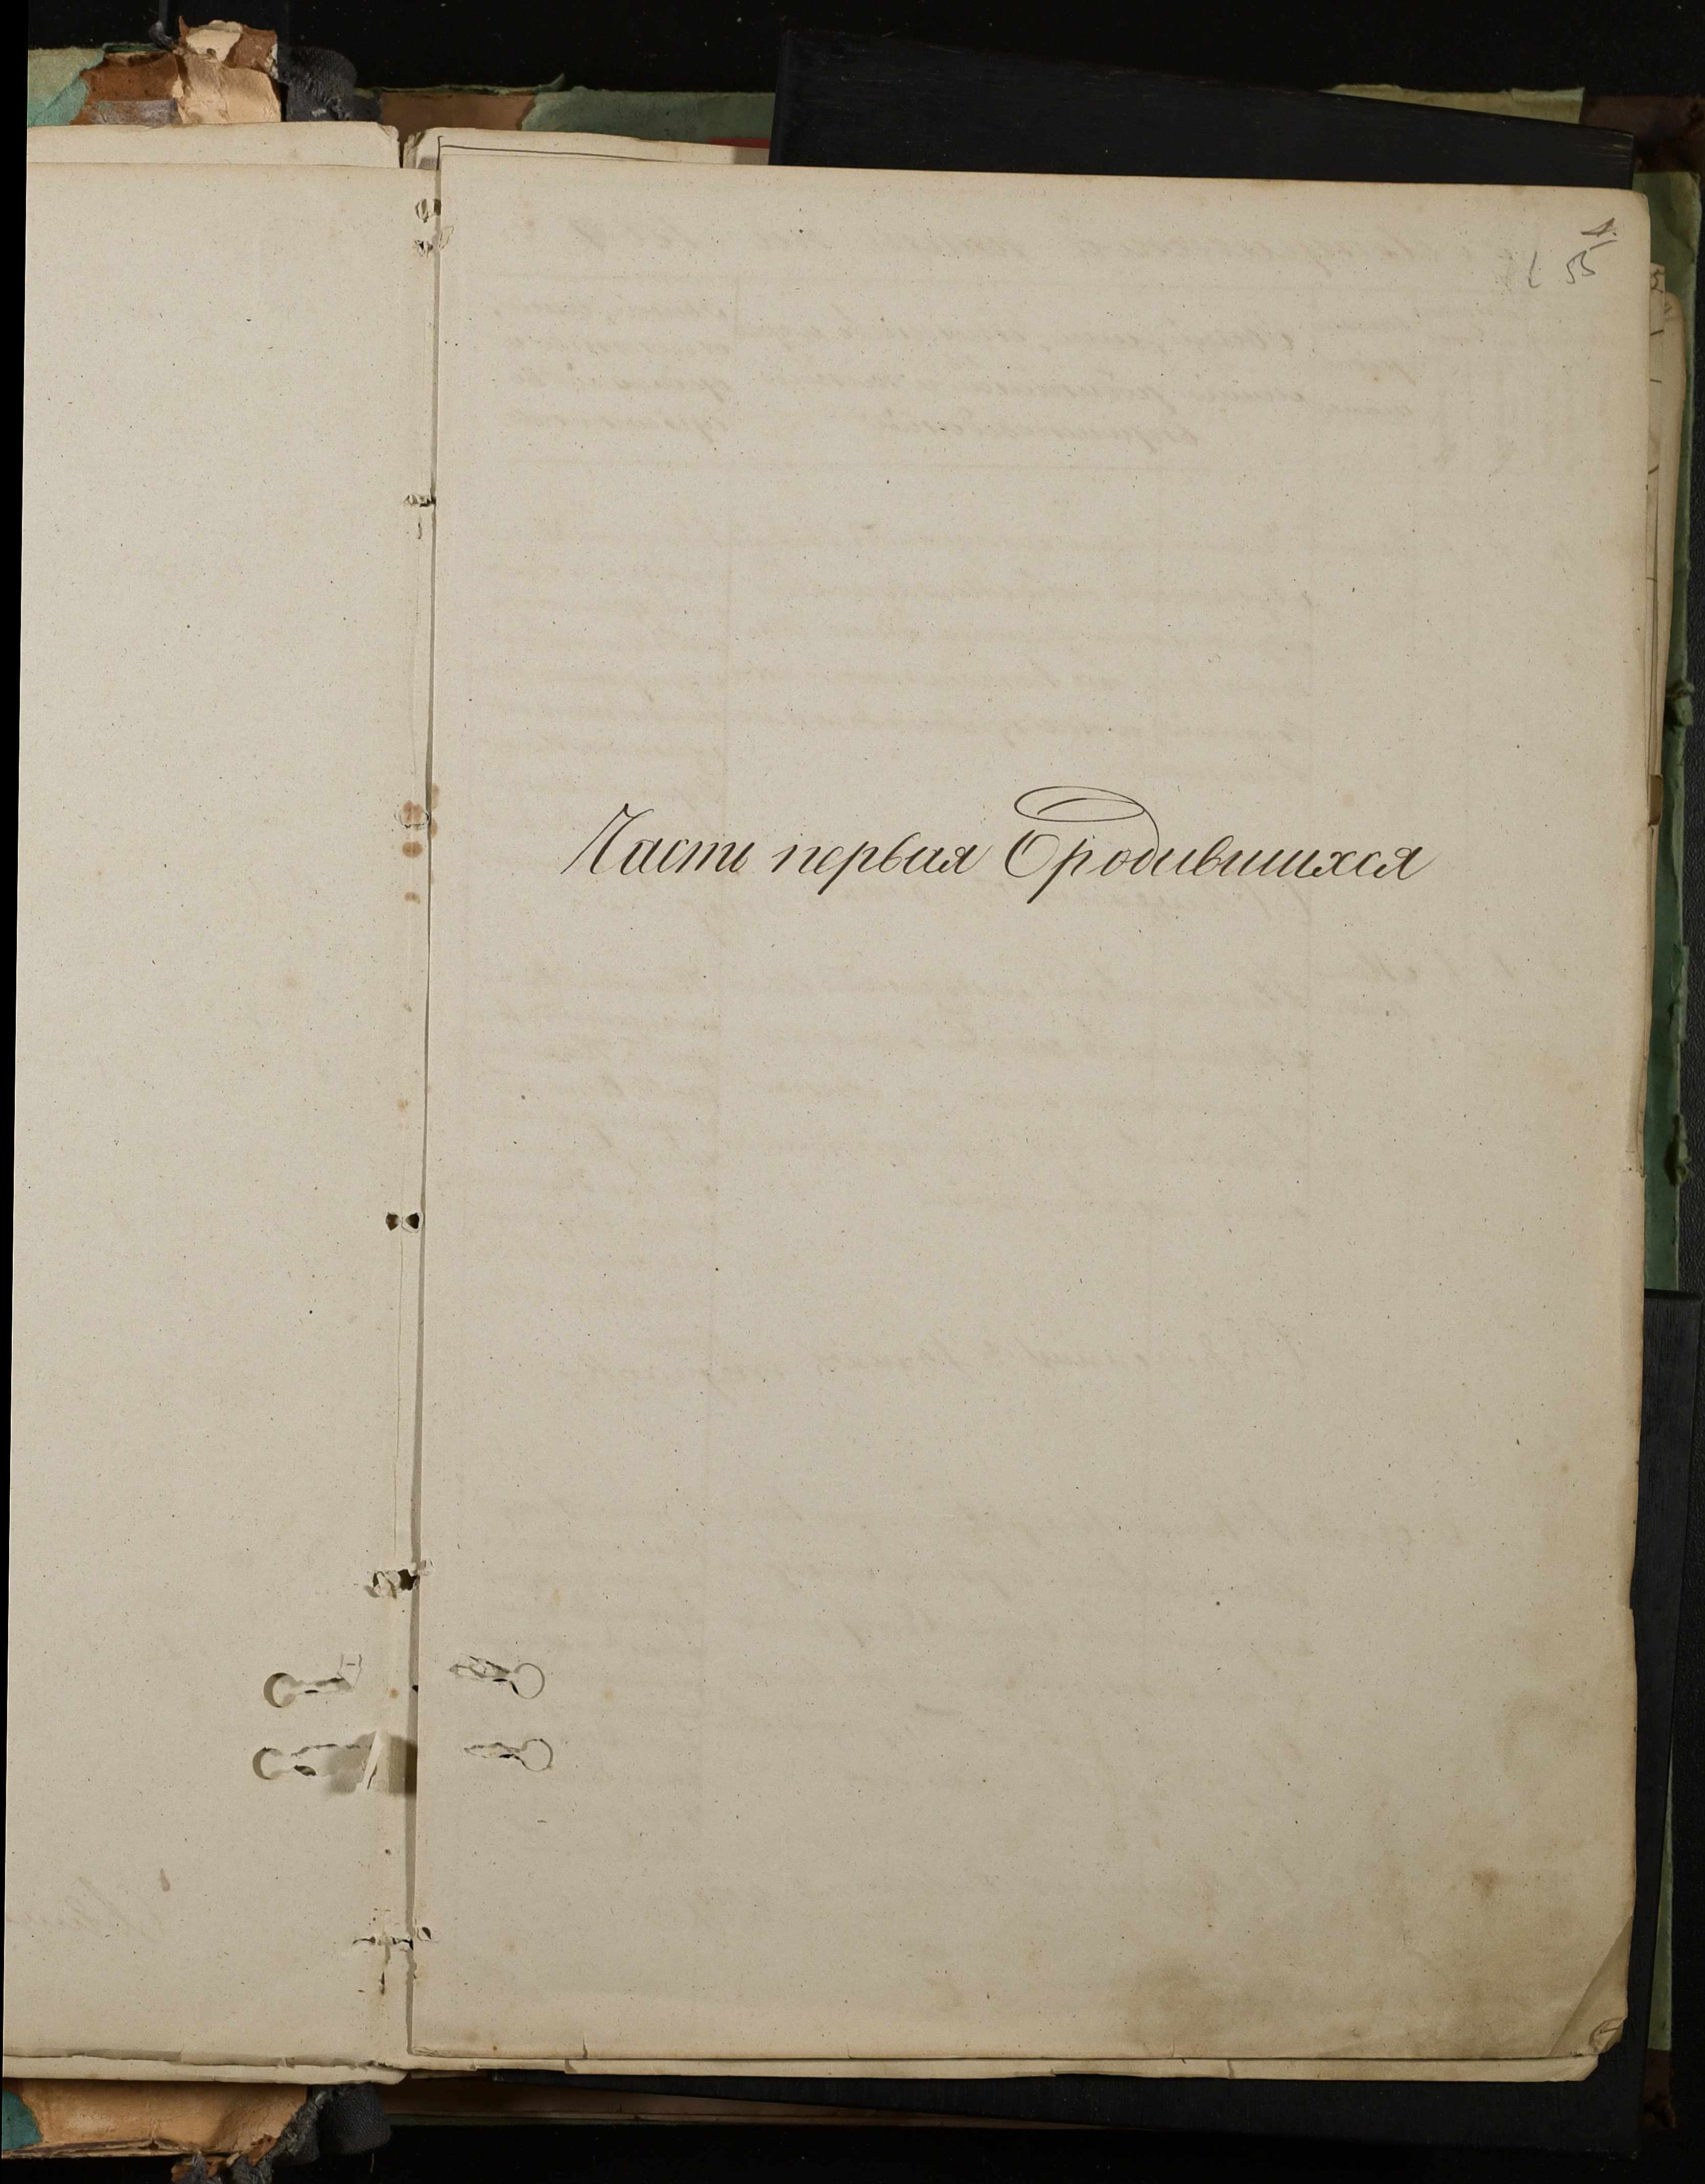 55
Часть первая О родившихся